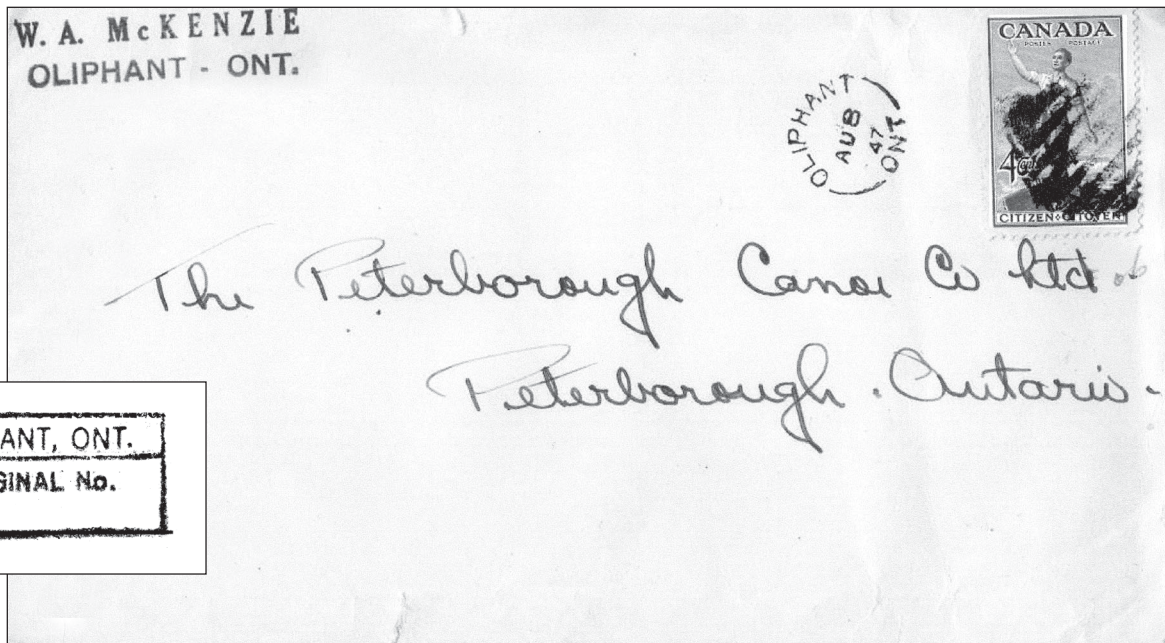 W. A. McKENZIE
OLIPHANT - ONT.
OLIPHANT
AU 8
47
ONT
CANADA
POSTES POSTAGE
4
CITIZEN CITOYEN
The Peterborough Canoe Co Ltd.
Peterborough. Ontario.
ANT, ONT.
GINAL No.